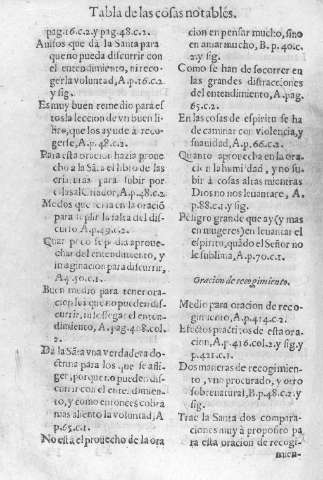 Tabla de las cosas notables.
pag.16.c.2.y pag.48.c.2.
Auisos que da la Santa para
que no pueda discurrir con
el entendimiento, ni reco-
ger la voluntad, A.p.16.c.2
y sig.
Es muy buen remedio para es
tos la leccion de vn buen li-
bro, que los ayude a reco-
gerse, A.p.48.c.2.
Para esta oracion hazia proue
cho a la Sãta el libro de las
criaturas para subir por
ellas al Criador, A.p.48.c.2
Medos que tenia en la oraciõ
para suplir la falta del dis-
curso. A.p.49.c.2.
Que poco se podia aproue-
char del entendimiento, y
imaginacion para discurrir,
A.p.50.c.1.
Buen medio para tener ora-
cion los que no pueden dis-
currir, ni sossegar el enten-
dimiento, A.pag.408.col.
2.
Dà la Sãta vna verdadera do-
ctrina para los que se afli-
gen, porque no pueden dis-
currir con el entendimien-
to, y como entonces cobra
mas aliento la voluntad, A
p.65.c.1.
No està el prouecho de la ora
cion en pensar mucho, sino
en amar mucho, B.p.40.c.
2.y sig.
Como se han de socorrer en
las grandes distracciones
del entendimiento, A.pag.
65.c.2.
En las cosas de espiritu se ha
de caminar con violencia, y
suauidad, A.p.66.c.2.
Quanto aprouecha en la ora-
cion la humildad, y no su-
bir à cosas altas mientras
Dios no nos leuantare, A.
p.88.c.1.y sig.
Peligro grande que ay (y mas
en mugeres) en leuantar el
espiritu, quãdo el Señor no
le sublima, A.p.70.c.1.
Oracion de recogimiento.
Medio para oracion de reco-
gimiento, A.p.414.c.2.
Efectos practicos de esta ora-
cion, A.p.416.col.2.y sig.y
p.421.c.1.
Dos maneras de recogimien-
to, vno procurado, y otro
sobrenatural, B.p.48.c.2.y
sig.
Trae la Santa dos compara-
ciones muy à proposito pa
ra esta oracion de recogi-
mien-